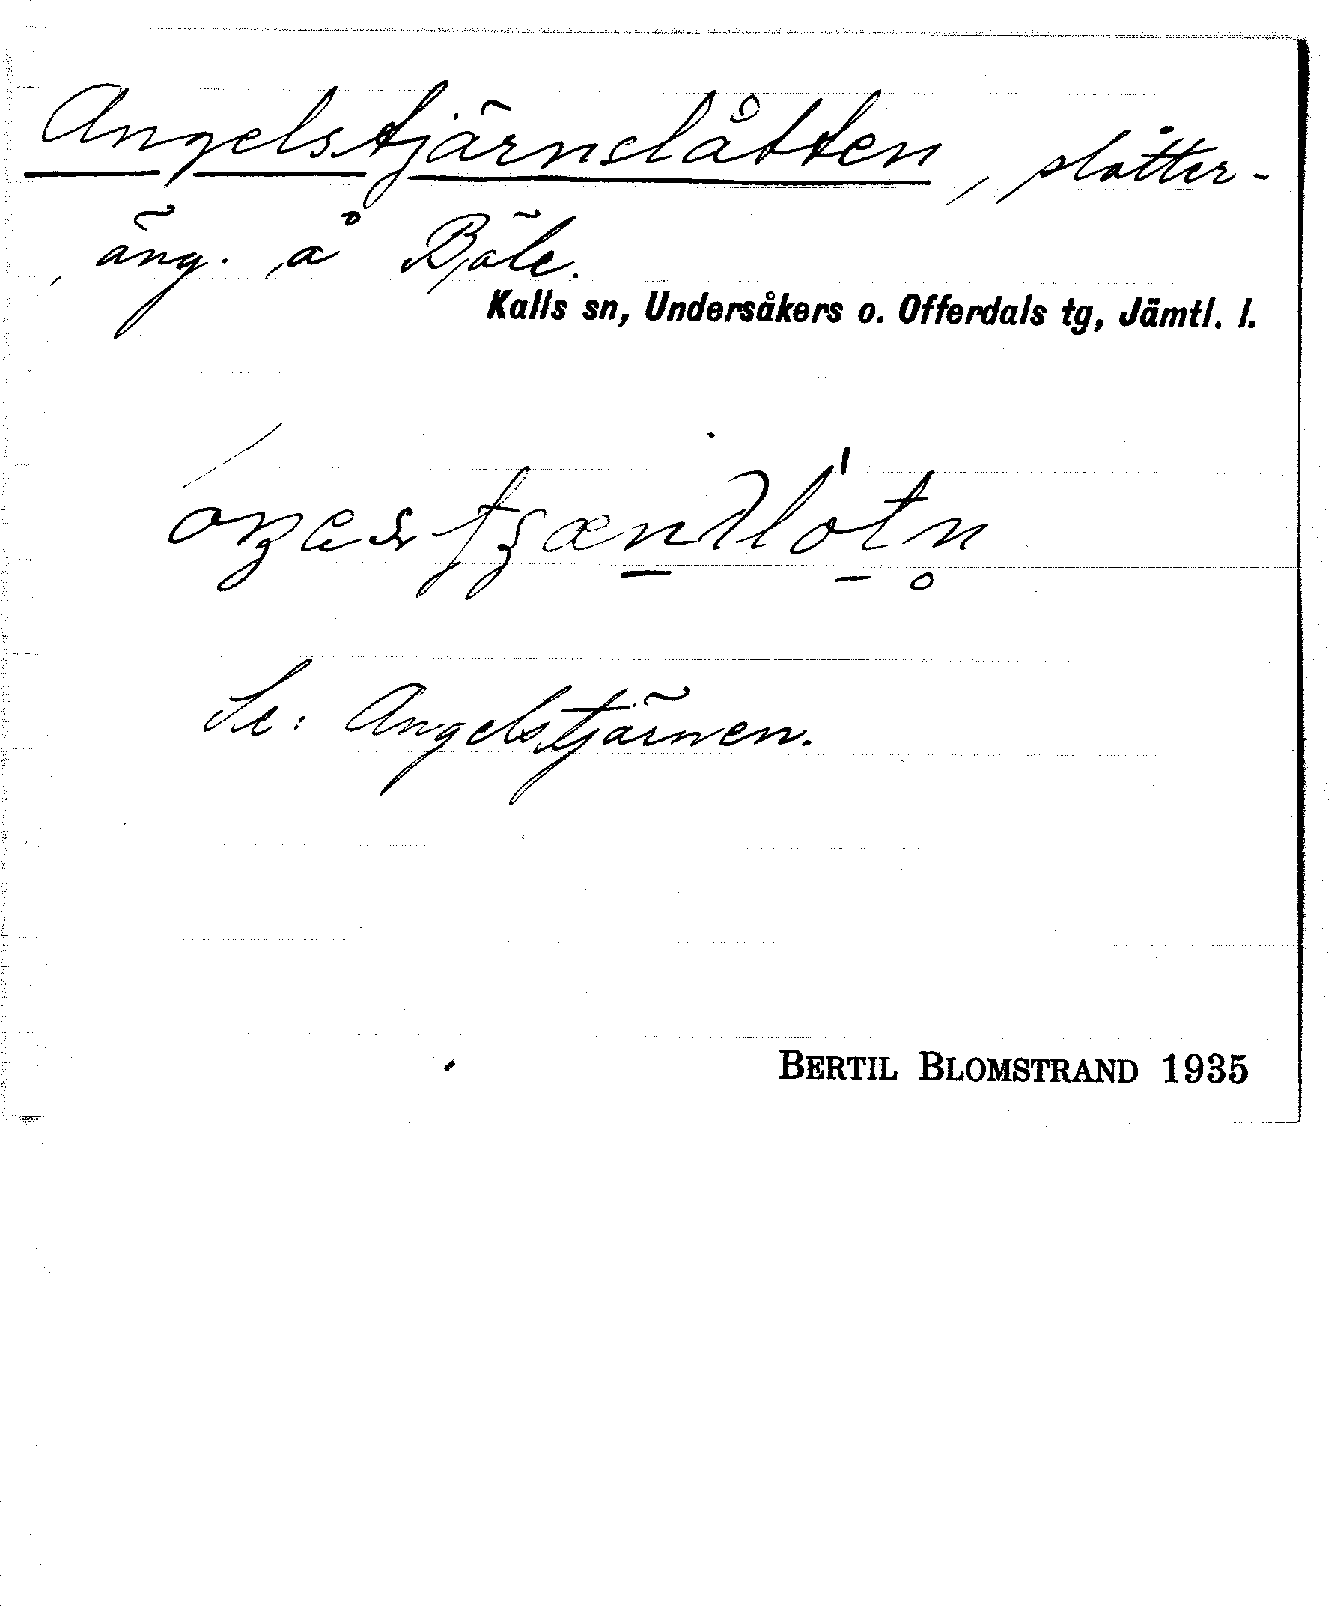 Angelstjärnslåtten, slåtter-
äng. å Böle.
Kalls sn, Undersåkers o. Offerdals tg, Jämtl. l.
Se: Angelstjärnen.
BERTIL BLOMSTRAND 1935